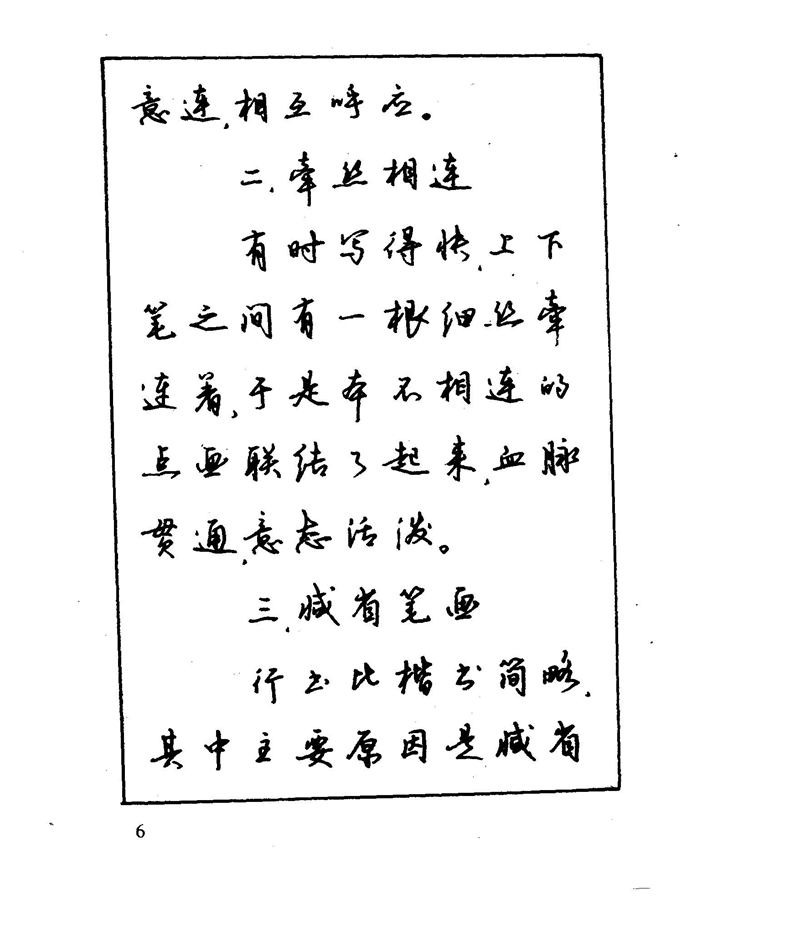 意连,相互呼应。
二、牵丝相连
有时写得快,上下
笔之间有一根细丝牵
连着,于是本不相连的
点画联结了起来,血脉
贯通,意态活泼。
三、减省笔画
行书比楷书简略,
其中主要原因是减省
6